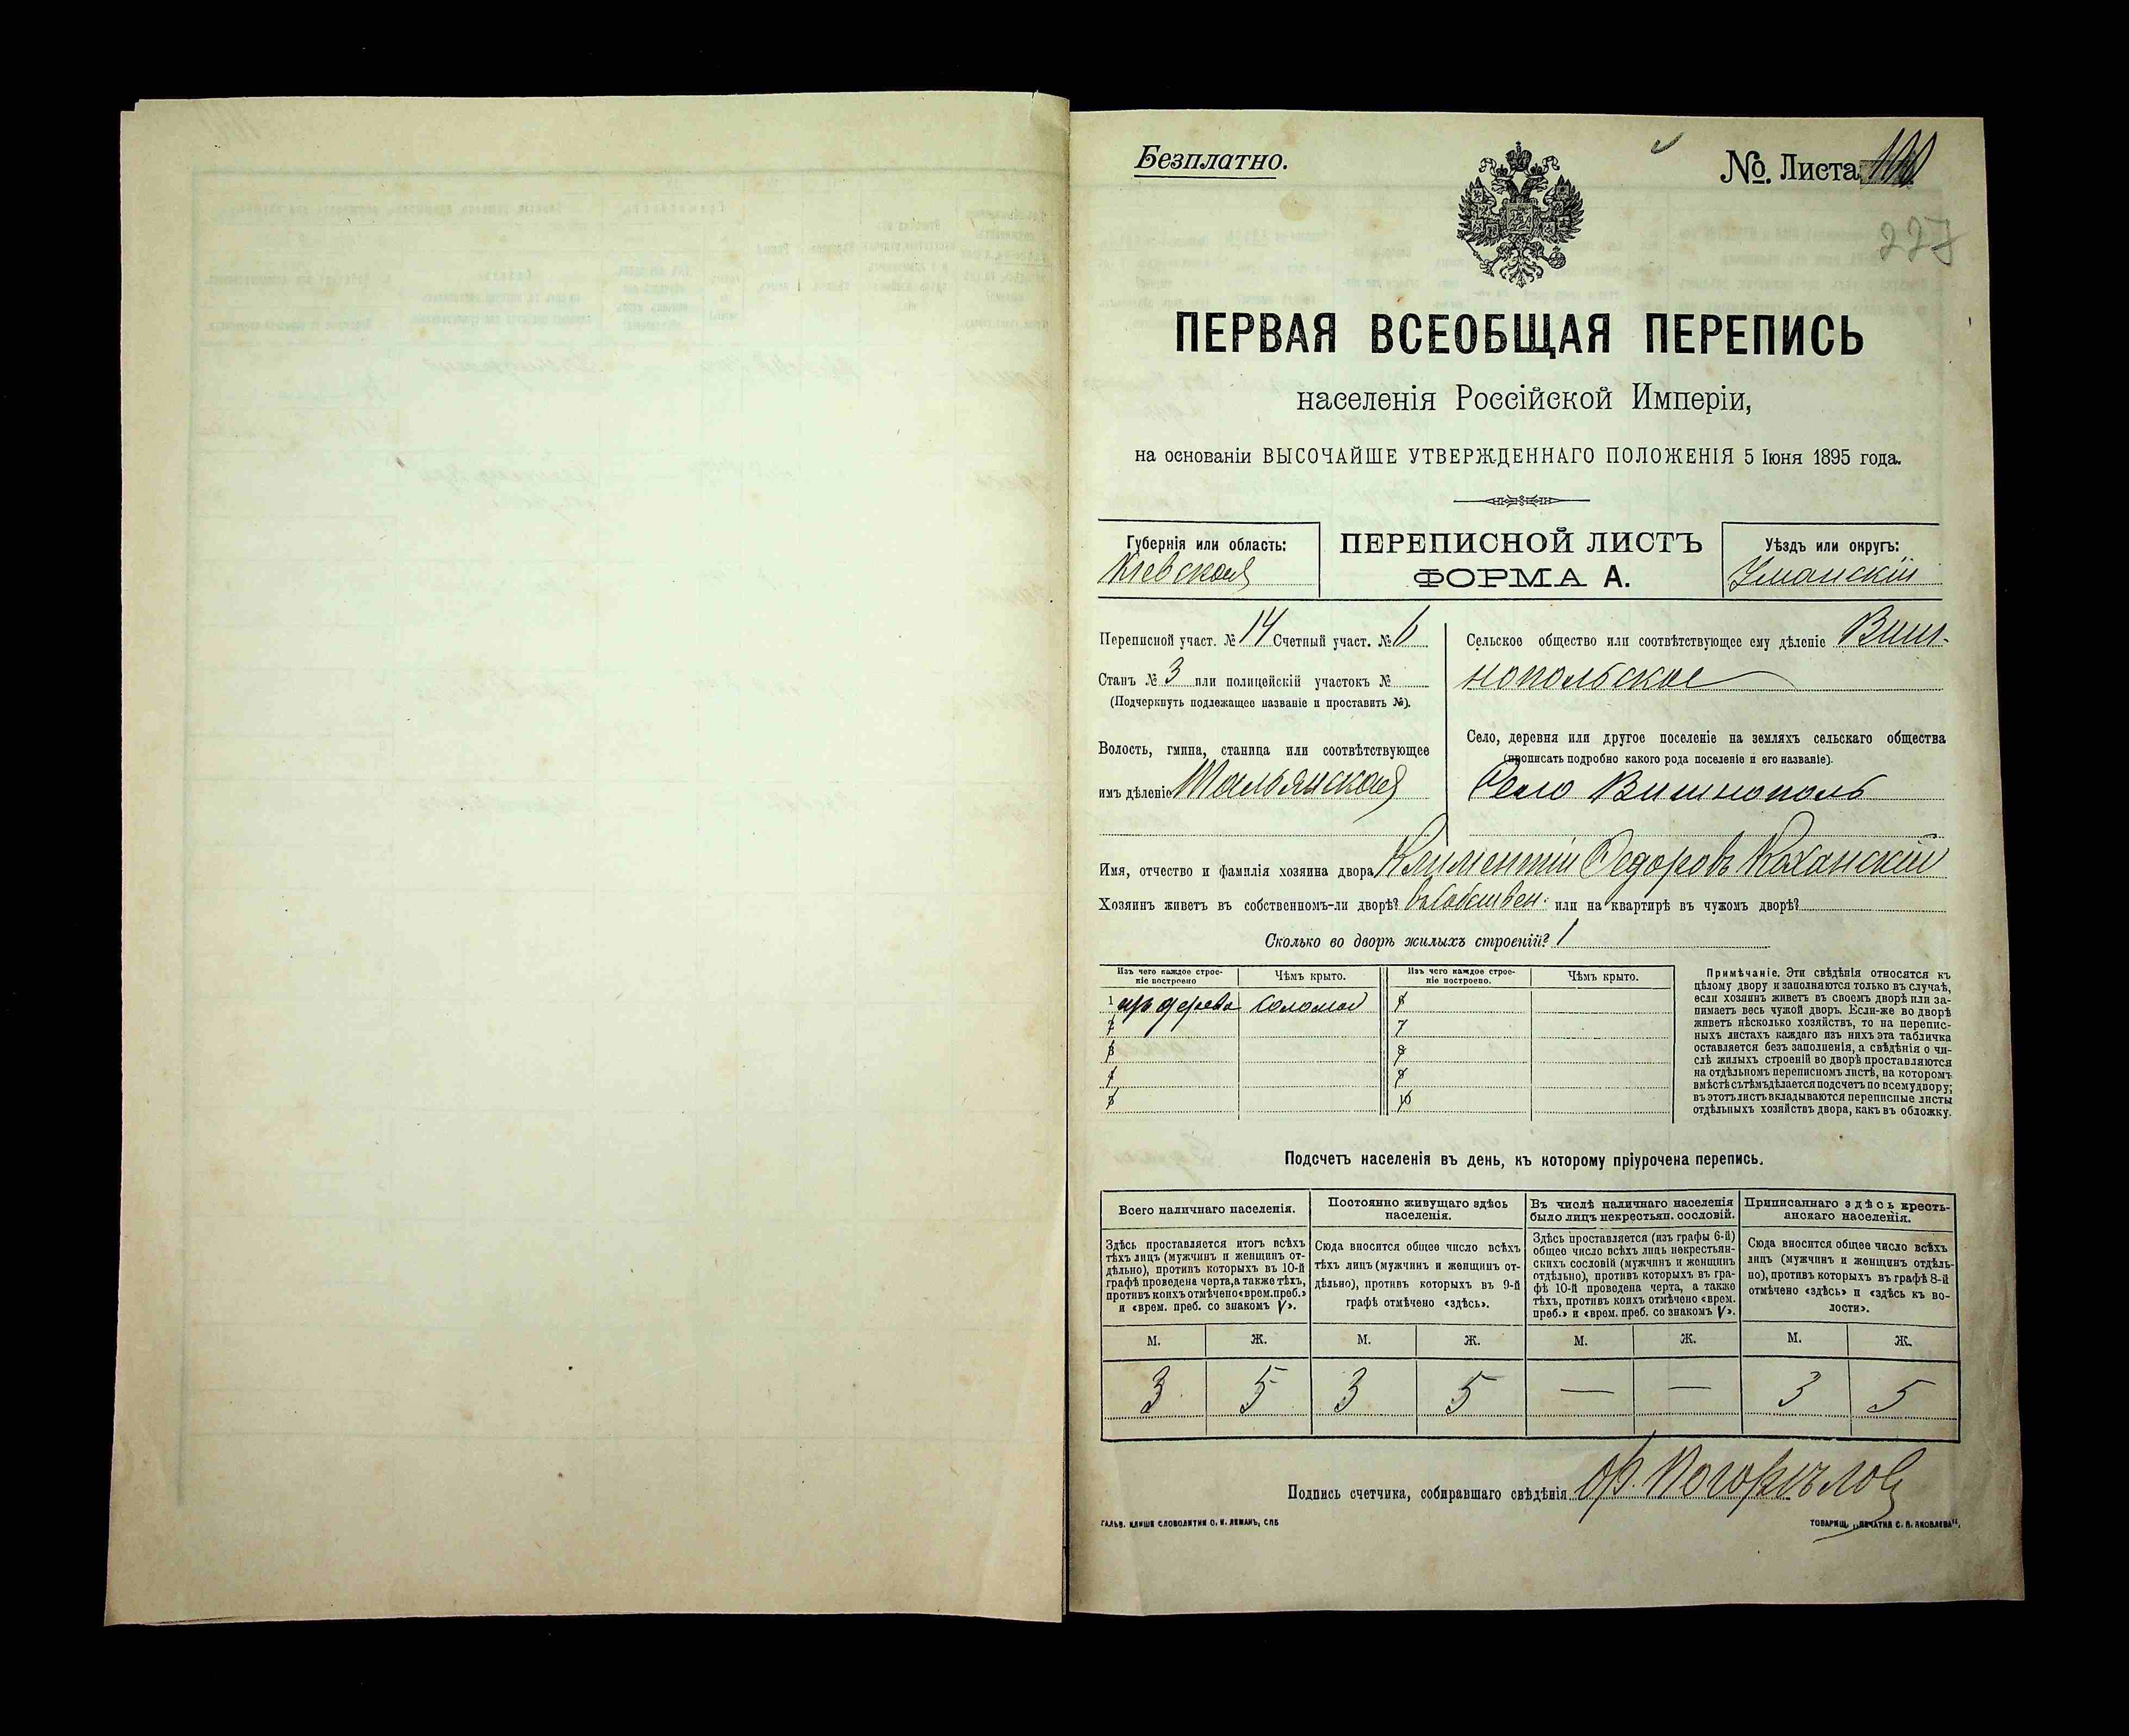 Безплатно.
№. Листа 100
227
ПЕРВАЯ ВСЕОБЩАЯ ПЕРЕПИСЬ
населенія Россійской Имперіи,
на основаніи ВЫСОЧАЙШЕ УТВЕРЖДЕННАГО ПОЛОЖЕНІЯ 5 Іюня 1895 года.
Губернія или область:
Кіевская
ПЕРЕПИСНОЙ ЛИСТЪ
ФОРМА А.
Уѣздъ или округъ:
Уманскій
Переписной участ. № 14 Счетный участ. № 6
Станъ № 3 или полицейскій участокъ №
(Подчеркнуть подлежащее названіе и проставить №).
Волость, гмина, станица или соотвѣтствующее
имъ дѣленіе Тальянская
Сельское общество или соотвѣтствующее ему дѣленіе Виш-
нопольское
Село, деревня или другое поселеніе на земляхъ сельскаго общества
(прописать подробно какого рода поселеніе и его названіе).
Село Вишнополь
Имя, отчество и фамилія хозяина двора Климентій Федоровъ Коханскій
Хозяинъ живетъ въ собственномъ-ли дворѣ? въ собствен. или на квартирѣ въ чужомъ дворѣ?
Сколько во дворѣ жилыхъ строеній? 1
Изъ чего каждое строе-
ніе построено
Чѣмъ крыто.
Изъ чего каждое строе-
ніе построено.
Чѣмъ крыто.
1 изъ дерева соломой 6
2 7
3 8
4 9
5 10
Примѣчаніе. Эти свѣдѣнія относятся къ
цѣлому двору и заполняются только въ случаѣ,
если хозяинъ живетъ въ своемъ дворѣ или за-
нимаетъ весь чужой дворъ. Если-же во дворѣ
живетъ нѣсколько хозяйствъ, то на перепис-
ныхъ листахъ каждаго изъ нихъ эта табличка
оставляется безъ заполненія, а свѣдѣнія о чи-
слѣ жилыхъ строеній во дворѣ проставляются
на отдѣльномъ переписномъ листѣ, на которомъ
вмѣстѣ съ тѣмъ дѣлается подсчетъ по всему двору;
въ этотъ листъ вкладываются переписные листы
отдѣльныхъ хозяйствъ двора, какъ въ обложку.
Подсчетъ населенія въ день, къ которому пріурочена перепись.
Всего наличнаго населенія.
Здѣсь проставляется итогъ всѣхъ
тѣхъ лицъ (мужчинъ и женщинъ от-
дѣльно), противъ которыхъ въ 10-й
графѣ проведена черта, а также тѣхъ,
противъ коихъ отмѣчено «врем. преб.»
и «врем. преб. со знакомъ V».
Постоянно живущаго здѣсь
населенія.
Сюда вносится общее число всѣхъ
тѣхъ лицъ (мужчинъ и женщинъ от-
дѣльно), противъ которыхъ въ 9-й
графѣ отмѣчено «здѣсь».
Въ числѣ наличнаго населенія
было лицъ некрестьян. сословій.
Здѣсь проставляется (изъ графы 6-й)
общее число всѣхъ лицъ некрестьян-
скихъ сословій (мужчинъ и женщинъ
отдѣльно), противъ которыхъ въ гра-
фѣ 10-й проведена черта, а также
тѣхъ, противъ коихъ отмѣчено «врем.
преб.» и «врем. преб. со знакомъ V».
Приписаннаго здѣсь кресть-
янскаго населенія.
Сюда вносится общее число всѣхъ
лицъ (мужчинъ и женщинъ отдѣль-
но), противъ которыхъ въ графѣ 8-й
отмѣчено «здѣсь» и «здѣсь къ во-
лости».
М. Ж. М. Ж. М. Ж. М. Ж.
3 5 3 5 — — 3 5
Подпись счетчика, собиравшаго свѣдѣнія Погорѣловъ
ГАЛЬВ. КЛИШЕ СЛОВОЛИТНИ О. И. ЛЕМАНЪ, СПБ
ТОВАРИЩ. „ПЕЧАТНЯ С. П. ЯКОВЛЕВА“.